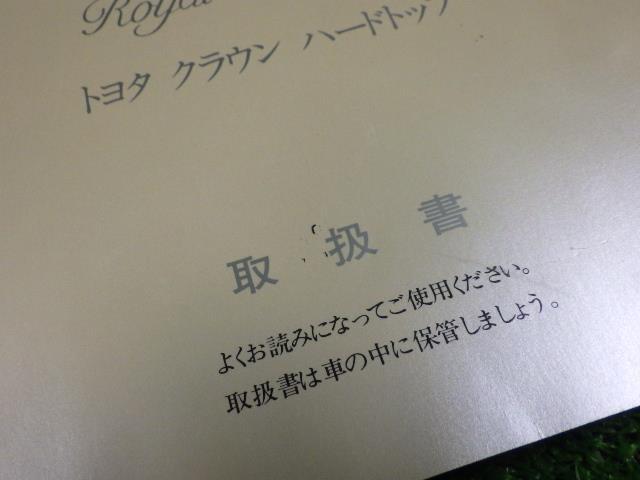 Royal
トヨタ クラウン ハードトップ
取扱書
よくお読みになってご使用ください。
取扱書は車の中に保管しましょう。